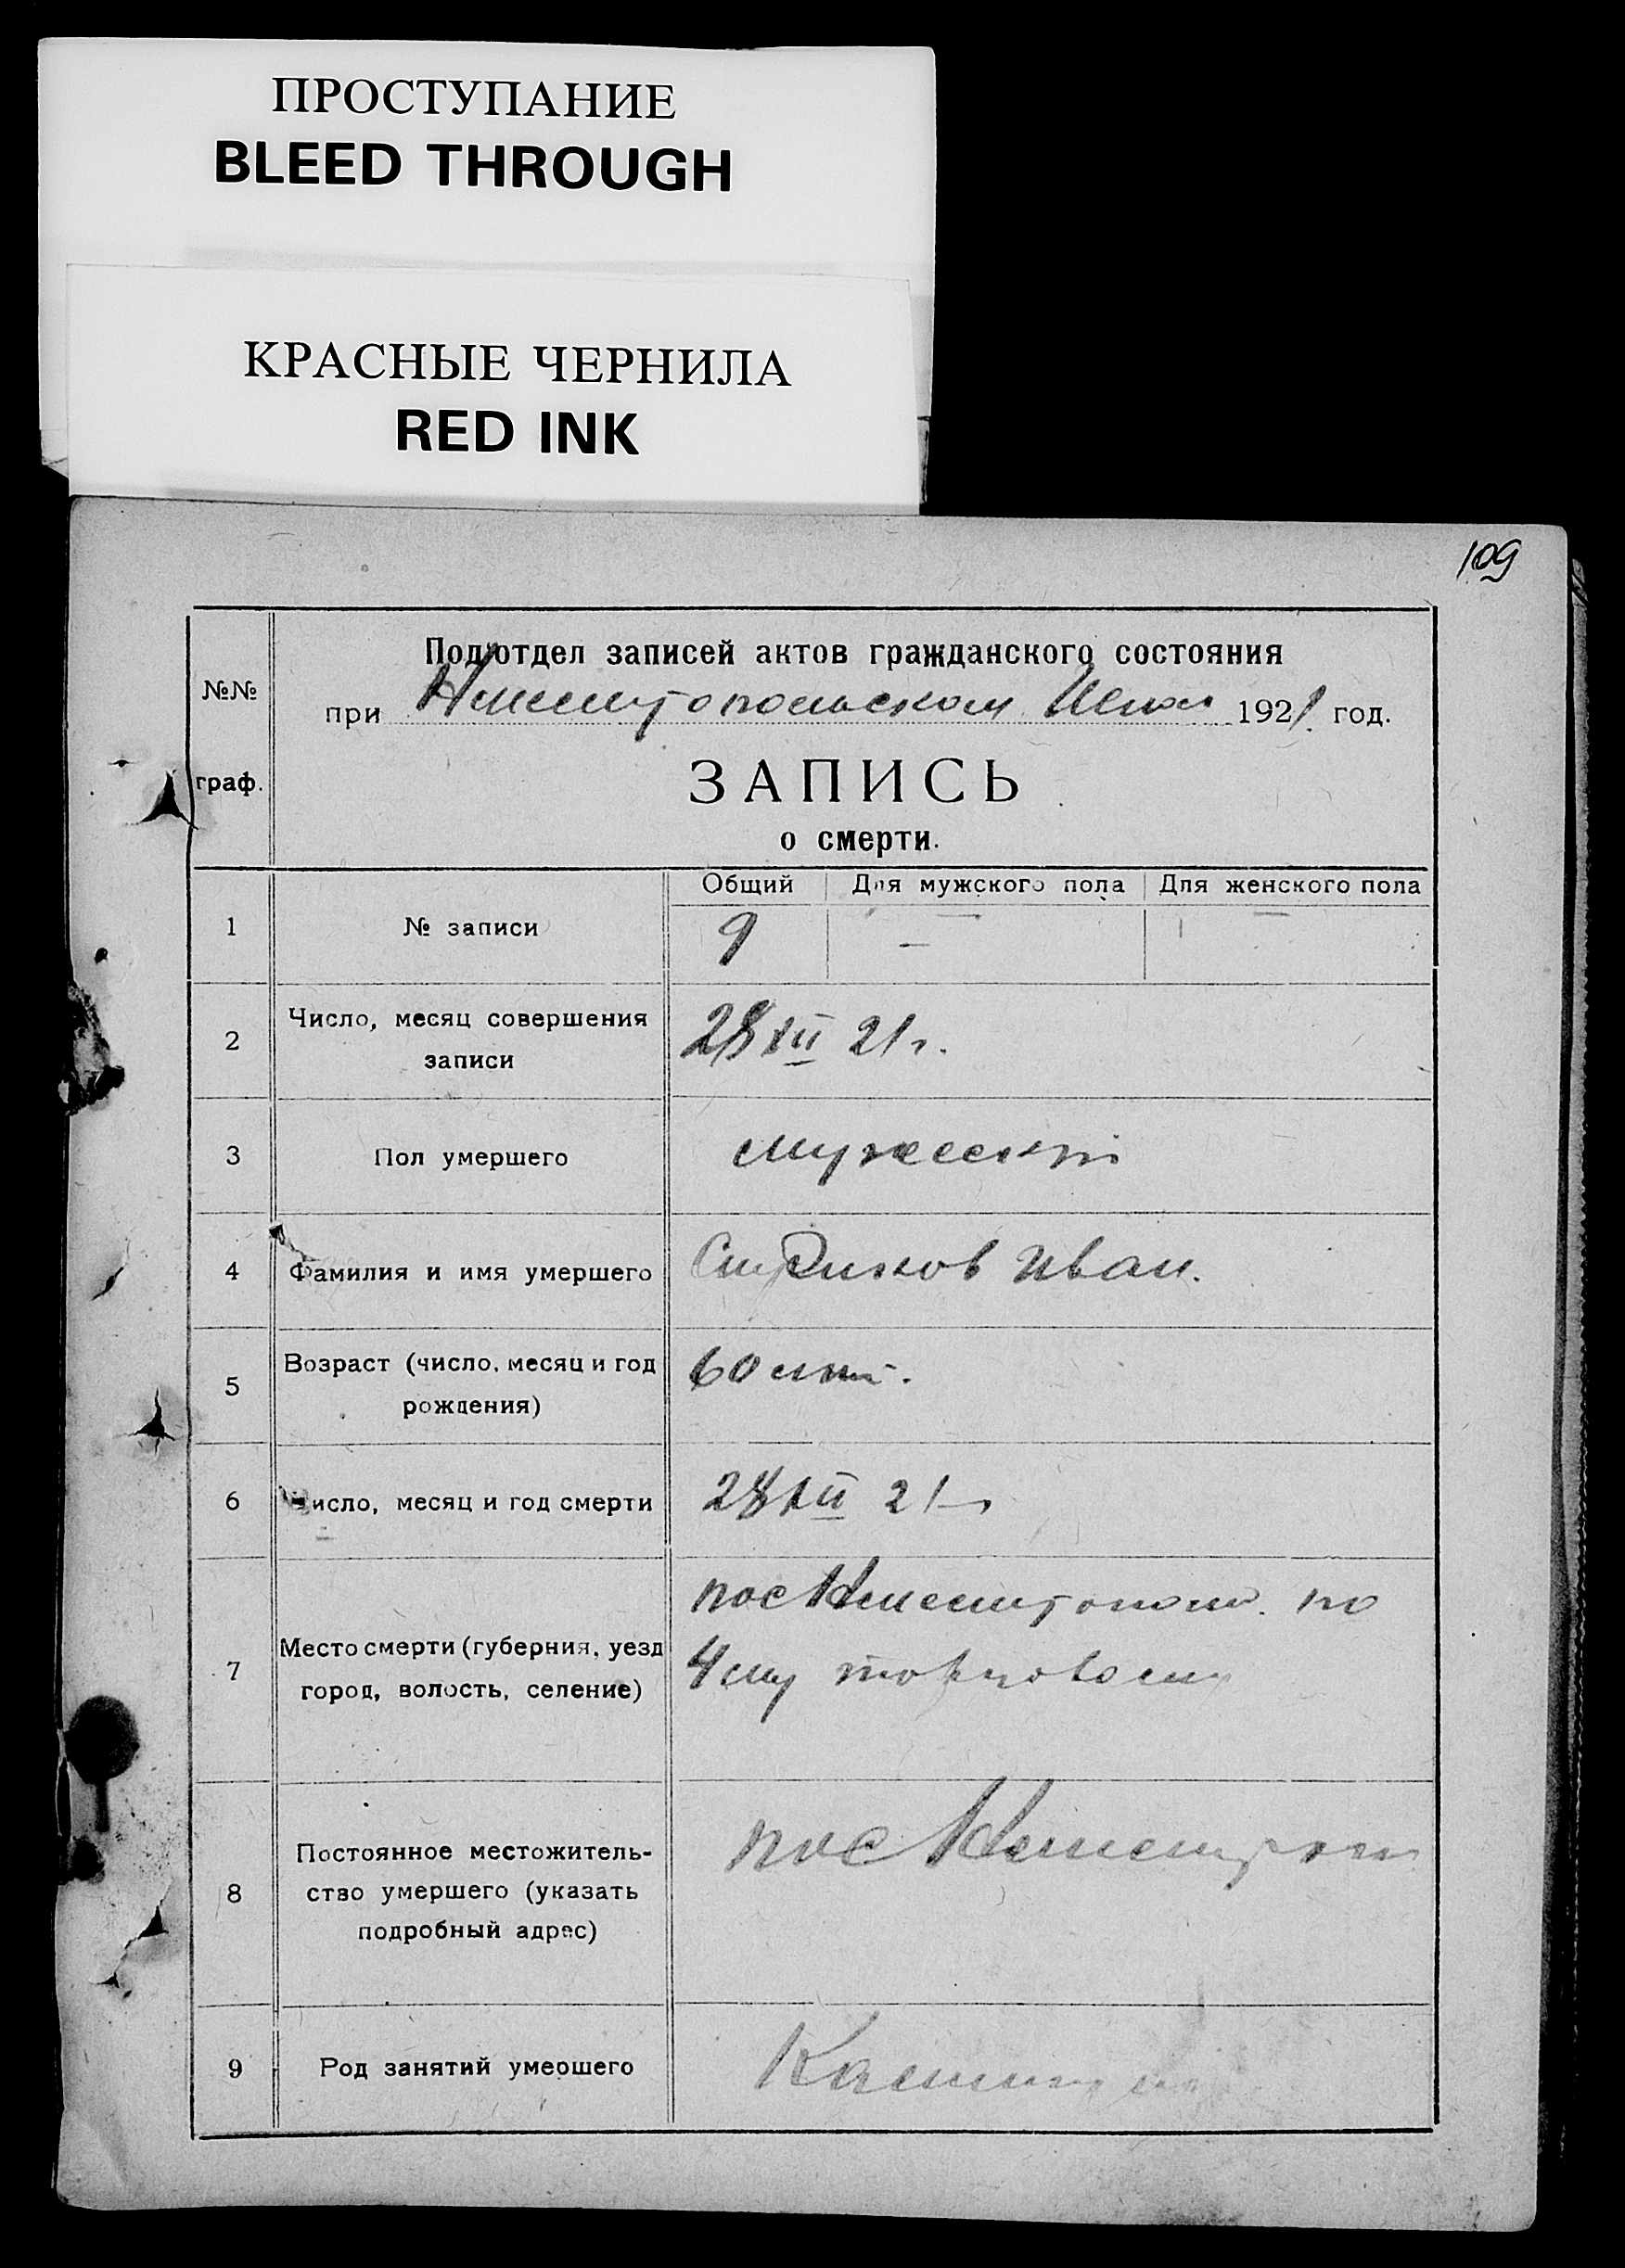 ПРОСТУПАНИЕ
BLEED THROUGH
КРАСНЫЕ ЧЕРНИЛА
RED INK
109
№№
граф.
Подотдел записей актов гражданского состояния
при 1921 год.
ЗАПИСЬ
о смерти.
Общий Для мужского пола Для женского пола
1 № записи 9 — —
2 Число, месяц совершения
записи
28 XII 21 г.
3 Пол умершего мужской
4 Фамилия и имя умершего Иван.
5 Возраст (число, месяц и год
рождения)
60 лет.
6 Число, месяц и год смерти 28 XII 21 г
7 Место смерти (губерния, уезд
город, волость, селение)
пос по
4му
8 Постоянное местожитель-
ство умершего (указать
подробный адрес)
пос
9 Род занятий умершего